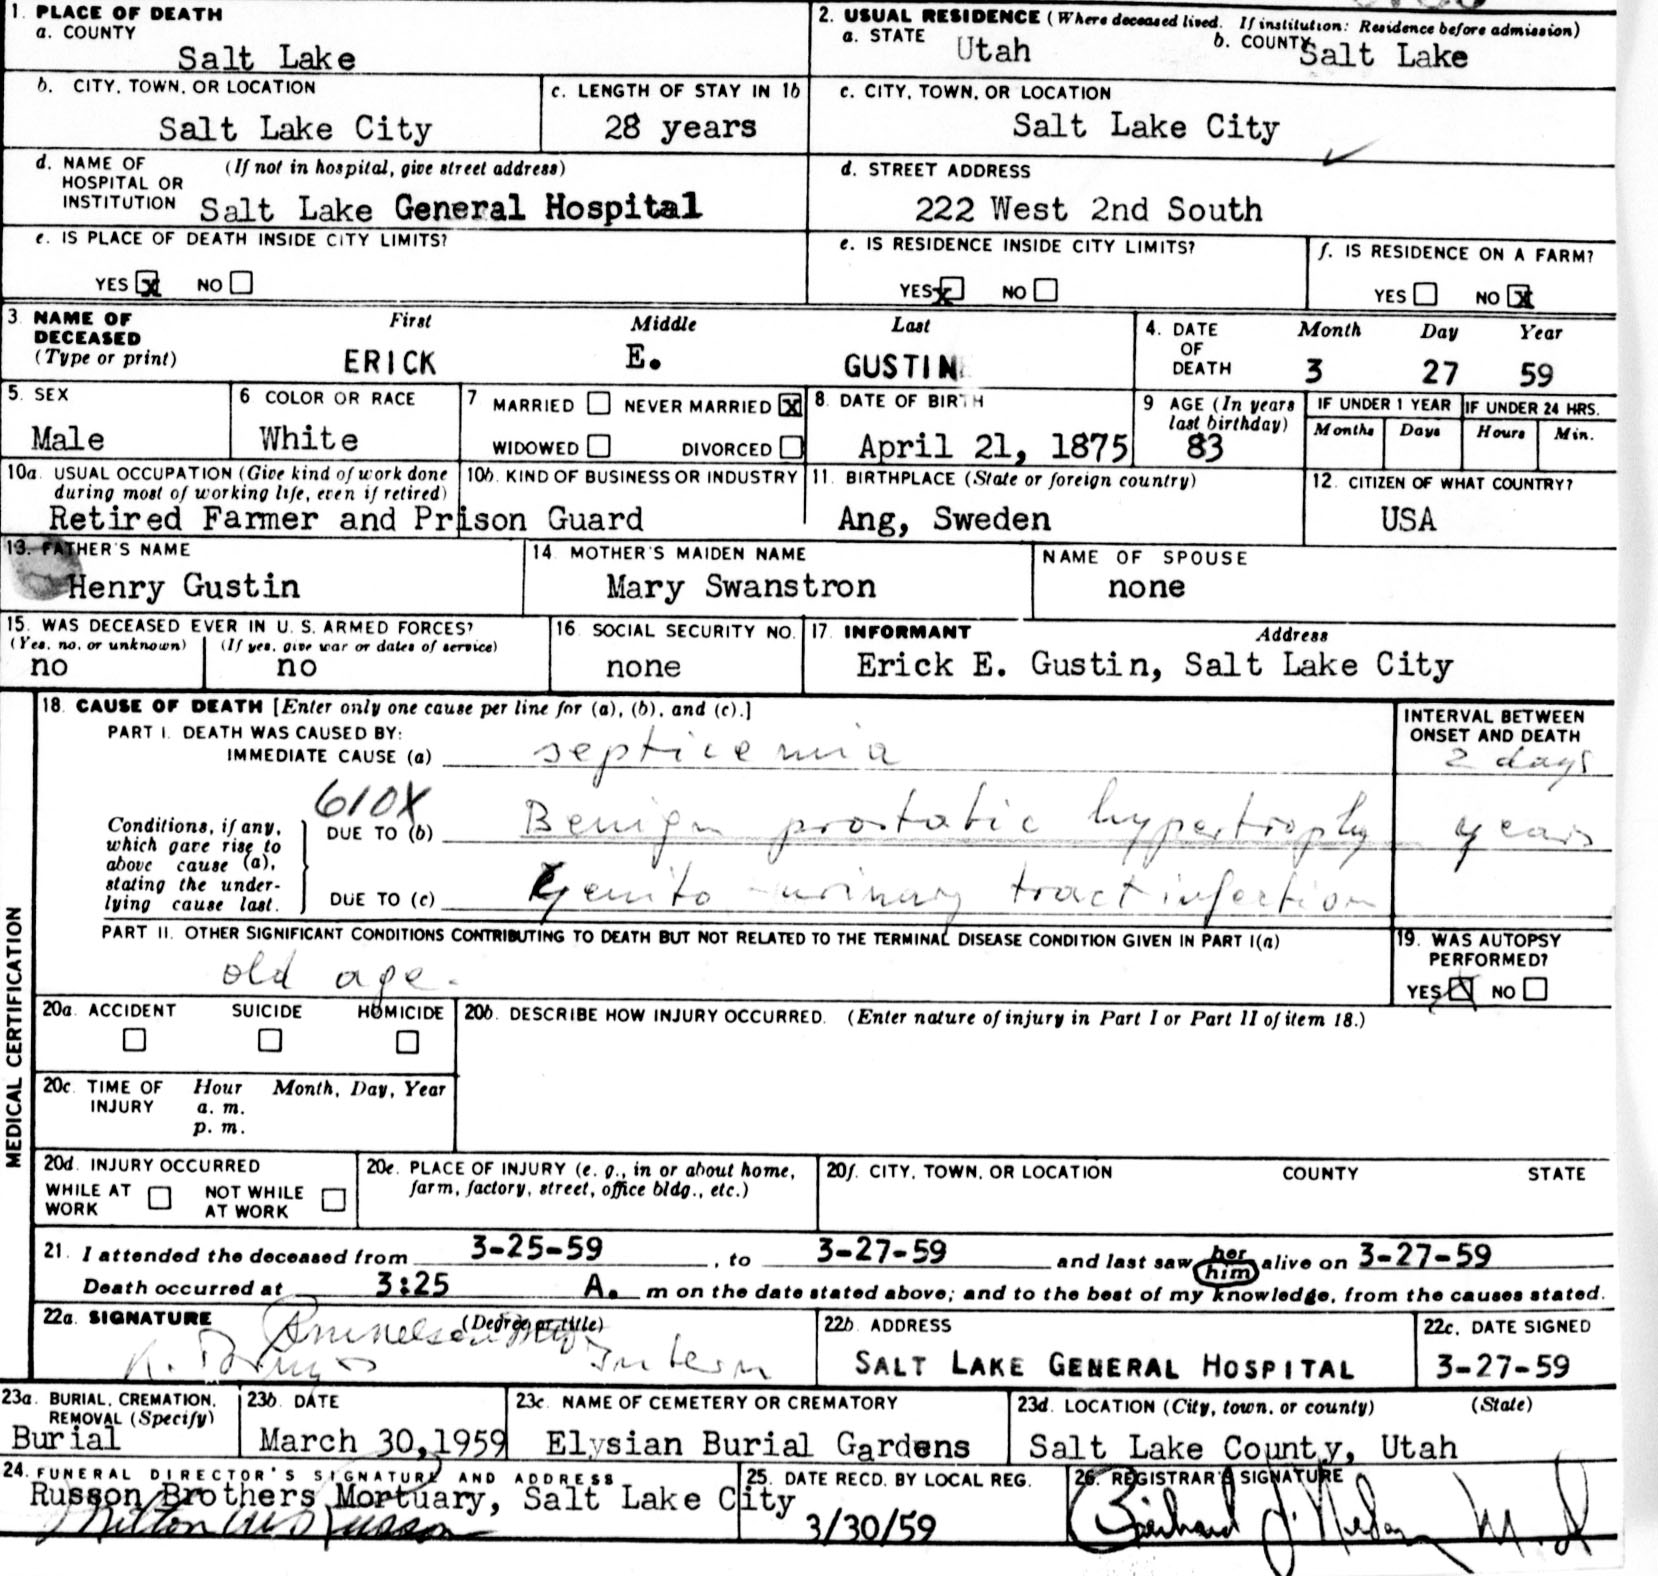 1. PLACE OF DEATH
a. COUNTY
Salt Lake
2. USUAL RESIDENCE (Where deceased lived. If institution: Residence before admission)
a. STATE Utah b. COUNTY Salt Lake
b. CITY, TOWN, OR LOCATION
Salt Lake City
c. LENGTH OF STAY IN 1b
28 years
c. CITY, TOWN, OR LOCATION
Salt Lake City
d. NAME OF HOSPITAL OR INSTITUTION (If not in hospital, give street address)
Salt Lake General Hospital
d. STREET ADDRESS
222 West 2nd South
e. IS PLACE OF DEATH INSIDE CITY LIMITS?
YES X NO
e. IS RESIDENCE INSIDE CITY LIMITS?
YES X NO
f. IS RESIDENCE ON A FARM?
YES NO X
3. NAME OF DECEASED (Type or print)
First Middle Last
ERICK E. GUSTIN
4. DATE OF DEATH
Month Day Year
3 27 59
5. SEX
Male
6 COLOR OR RACE
White
7 MARRIED NEVER MARRIED X
WIDOWED DIVORCED
8. DATE OF BIRTH
April 21, 1875
9 AGE (In years last birthday)
83
IF UNDER 1 YEAR
Months Days
IF UNDER 24 HRS.
Hours Min.
10a. USUAL OCCUPATION (Give kind of work done during most of working life, even if retired)
10b. KIND OF BUSINESS OR INDUSTRY
Retired Farmer and Prison Guard
11. BIRTHPLACE (State or foreign country)
Ang, Sweden
12. CITIZEN OF WHAT COUNTRY?
USA
13. FATHER'S NAME
Henry Gustin
14. MOTHER'S MAIDEN NAME
Mary Swanstron
NAME OF SPOUSE
none
15. WAS DECEASED EVER IN U. S. ARMED FORCES?
(Yes, no, or unknown) (If yes, give war or dates of service)
no no
16. SOCIAL SECURITY NO.
none
17. INFORMANT Address
Erick E. Gustin, Salt Lake City
MEDICAL CERTIFICATION
18. CAUSE OF DEATH [Enter only one cause per line for (a), (b), and (c).]
INTERVAL BETWEEN ONSET AND DEATH
PART I. DEATH WAS CAUSED BY:
IMMEDIATE CAUSE (a) septicemia 2 days
610X
Conditions, if any, which gave rise to above cause (a), stating the underlying cause last.
DUE TO (b) Benign prostatic hypertrophy years
DUE TO (c) Genito-urinary tract infection
PART II. OTHER SIGNIFICANT CONDITIONS CONTRIBUTING TO DEATH BUT NOT RELATED TO THE TERMINAL DISEASE CONDITION GIVEN IN PART I(a)
old age.
19. WAS AUTOPSY PERFORMED?
YES X NO
20a. ACCIDENT SUICIDE HOMICIDE
20b. DESCRIBE HOW INJURY OCCURRED. (Enter nature of injury in Part I or Part II of item 18.)
20c. TIME OF INJURY Hour Month, Day, Year
a. m.
p. m.
20d. INJURY OCCURRED
WHILE AT WORK NOT WHILE AT WORK
20e. PLACE OF INJURY (e. g., in or about home, farm, factory, street, office bldg., etc.)
20f. CITY, TOWN, OR LOCATION COUNTY STATE
21. I attended the deceased from 3-25-59, to 3-27-59 and last saw her him alive on 3-27-59
Death occurred at 3:25 A. m on the date stated above; and to the best of my knowledge, from the causes stated.
22a. SIGNATURE (Degree or title)
Intern
22b. ADDRESS
SALT LAKE GENERAL HOSPITAL
22c. DATE SIGNED
3-27-59
23a. BURIAL, CREMATION, REMOVAL (Specify)
Burial
23b. DATE
March 30, 1959
23c. NAME OF CEMETERY OR CREMATORY
Elysian Burial Gardens
23d. LOCATION (City, town, or county) (State)
Salt Lake County, Utah
24. FUNERAL DIRECTOR'S SIGNATURE AND ADDRESS
Russon Brothers Mortuary, Salt Lake City
25. DATE RECD. BY LOCAL REG.
3/30/59
26. REGISTRAR'S SIGNATURE